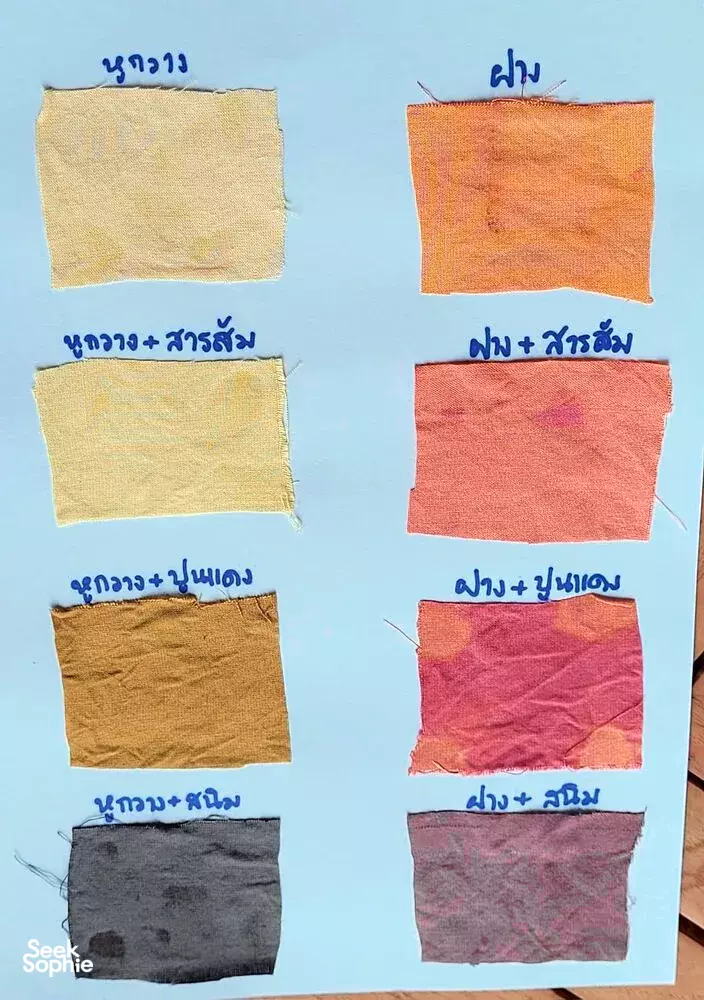 หูกวาง
ฝาง
หูกวาง + สารส้ม
ฝาง + สารส้ม
หูกวาง + ปูนแดง
ฝาง + ปูนแดง
หูกวาง + สนิม
ฝาง + สนิม
Seek
Sophie